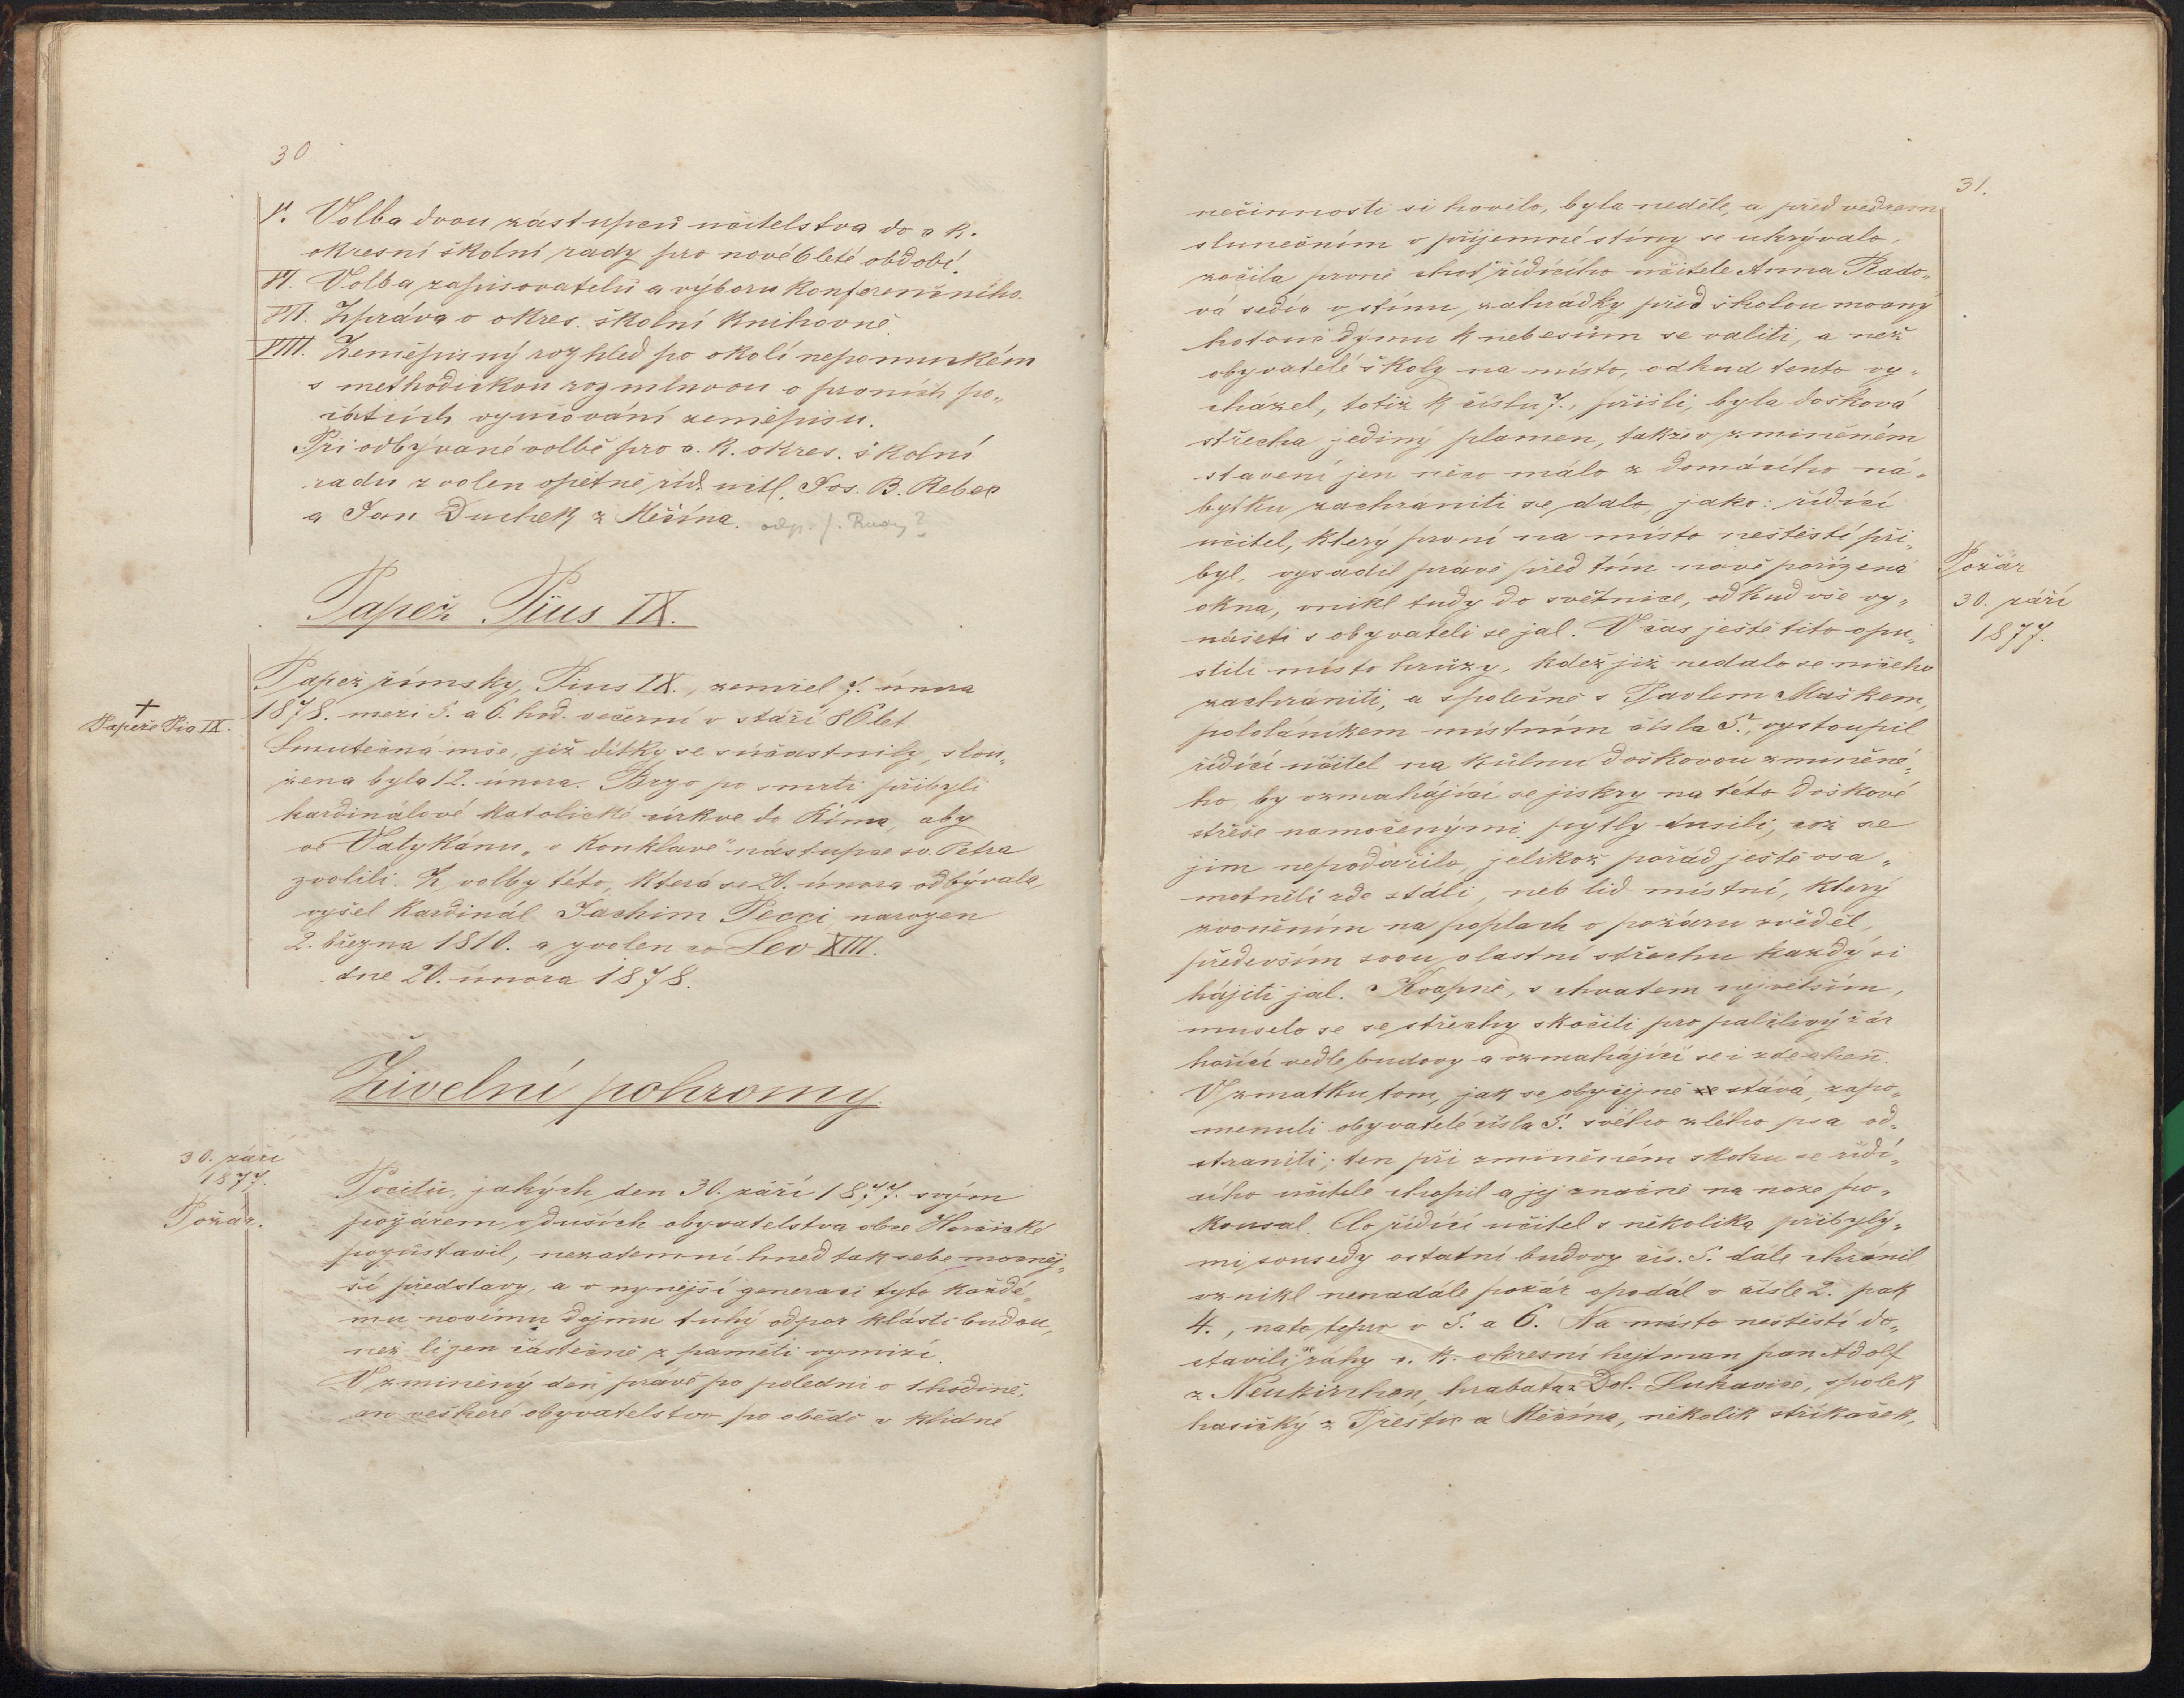 30
V. Volba dvou zástupců učitelstva do c. k.
okresní školní rady pro nové 6leté období.
VI. Volba zapisovatelů a výboru konferenčního.
VII. Zpráva o okres. školní knihovně.
VIII. Zeměpisný rozhled po okolí nepomuckém
s methodickou rozmluvou o prvních po„
čátcích vyučování zeměpisu.
Při odbývané volbě pro c. k. okres. školní
radu zvolen opětně říd. učtl. Jos. B. Rebec
a Jan Duchek z Měčína. odp. f. Rudy?
Papež Pius IX.
Papež římský, Pius IX., zemřel 7. února
1878. mezi 5. a 6. hod. večerní v stáří 86 let.
† Papeže Pia IX.
Smuteční mše, jíž dítky se súčastnily, slou„
žena byla 12. února. Brzo po smrti přibyli
kardinálové katolické církve do Říma, aby
ve Vatykánu „v konklave" nástupce sv. Petra
zvolili. Z volby této, která se 20. února odbývala,
vyšel kardinál Jachim Pecci narozen
2. března 1810. a zvolen co Lev XIII.
dne 20. února 1878.
Živelní pohromy.
30. září
1877.
Požár.
Pocitů, jakých den 30. září 1877. svým
požárem v duších obyvatelstva obce Horšické
pozůstavil, nezatemní hned tak sebe mocněj„
ší představy, a v nynější generaci tyto každé„
mu novému dojmu tuhý odpor klásti budou,
než li jen částečně z paměti vymizí.
V zmíněný den právě po poledni o 1 hodině,
an veškeré obyvatelstvo po obědě v klidné
31.
nečinnosti si hovělo, byla neděle, a před vedrem
slunečním v příjemné stíny se ukrývalo,
zočila prvně choť řídícího učitele Anna Rado„
vá sedíc v stínu zahrádky před školou mocný
hotově dýmu k nebesům se valiti, a než
obyvatelé školy na místo, odkud tento vy„
cházel, totiž k číslu 7., přišli, byla došková
střecha jediný plamen, takže v zmíněném
stavení jen něco málo z domácího ná„
bytku zachraniti se dalo, jako: řídící
učitel, který první na místo neštěstí při„
byl, vysadil právě před tím nově pořízená
okna, vnikl tudy do světnice, odkud vše vy„
nášeti s obyvateli se jal. V čas ještě tito opu„
stili místo hrůzy, kdež již nedalo se ničeho
zachrániti, a společně s Pavlem Maškem,
pololáníkem místním čísla 5., vystoupil
řídící učitel na kůlnu doškovou zmíněné„
ho, by vzmahájící se jiskry na této doškové
střeše namočenými pytly dusili, což se
jim nepodařilo, jelikož pořád ještě osa„
motnělí zde stáli, neb lid místní, který
zvoněním na poplach o požáru zvěděl,
především svou vlastní střechu každý si
hájiti jal. Kvapně, s chvatem největším,
muselo se se střechy skočiti pro palčlivý žár
hořící vedle budovy a vzmahající se i zde oheň.
V zmatku tom, jak se obyčejně stává, zapo„
menuli obyvatelé čísla 5. svého zlého psa od„
straniti; ten při zmíněném skoku se řídí„
cího učitele chopil a jej značně na noze po„
kousal. Co řídící učitel s několika přibylý„
mi sousedy ostatní budovy čís. 5. dále chránil
vznikl nenadále požár opodál v čísle 2. pak
4., nato teprv v 5. a 6. Na místo neštěstí do„
stavili se záhy c. k. okresní hejtman pan Adolf
z Neukirchen, hrabata z Dol. Lukavice, spolek
hasičký z Přeštic a Měčína, několik stříkaček,
Požár
30. září
1877.